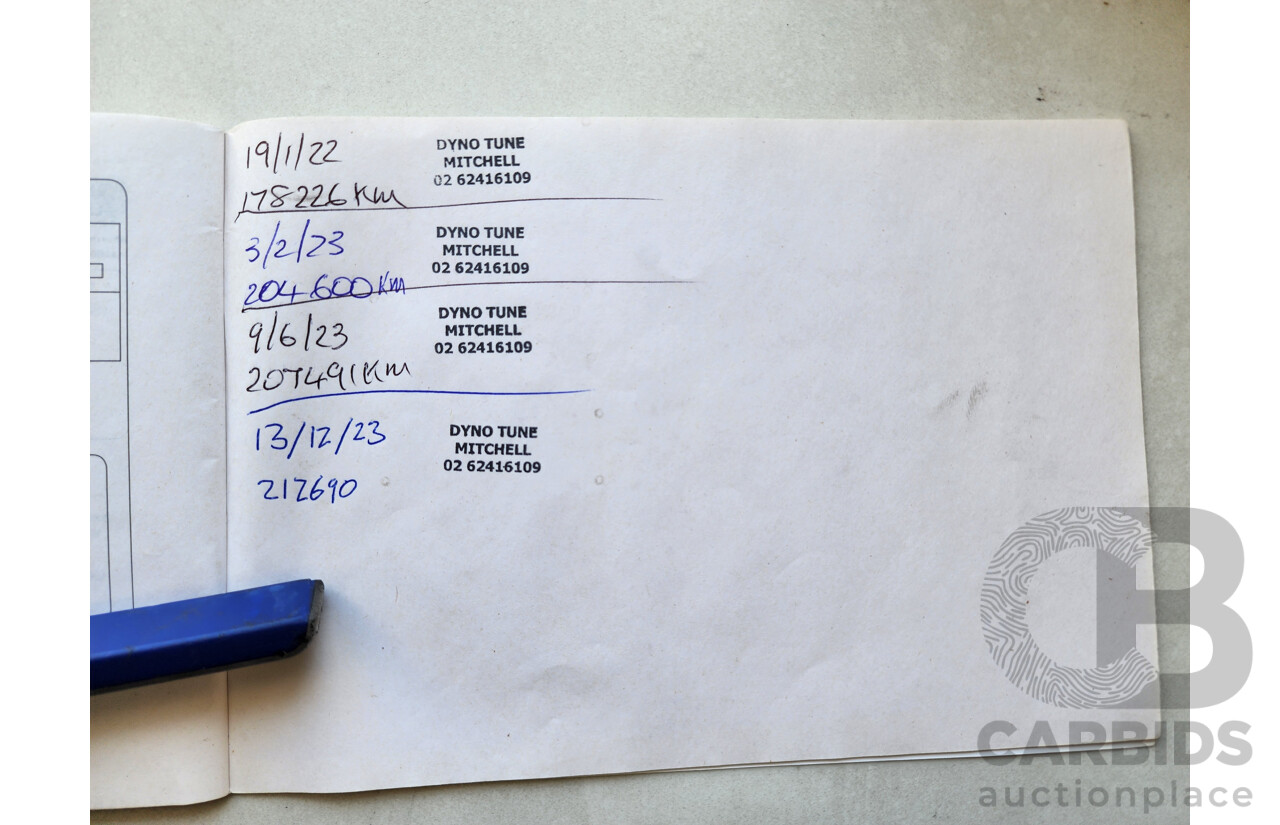 19/1/22
DYNO TUNE
MITCHELL
02 62416109
178226 Km
3/2/23
DYNO TUNE
MITCHELL
02 62416109
204600 Km
9/6/23
DYNO TUNE
MITCHELL
02 62416109
207491 Km
13/12/23
DYNO TUNE
MITCHELL
02 62416109
212690
CB
CARBIDS
auctionplace